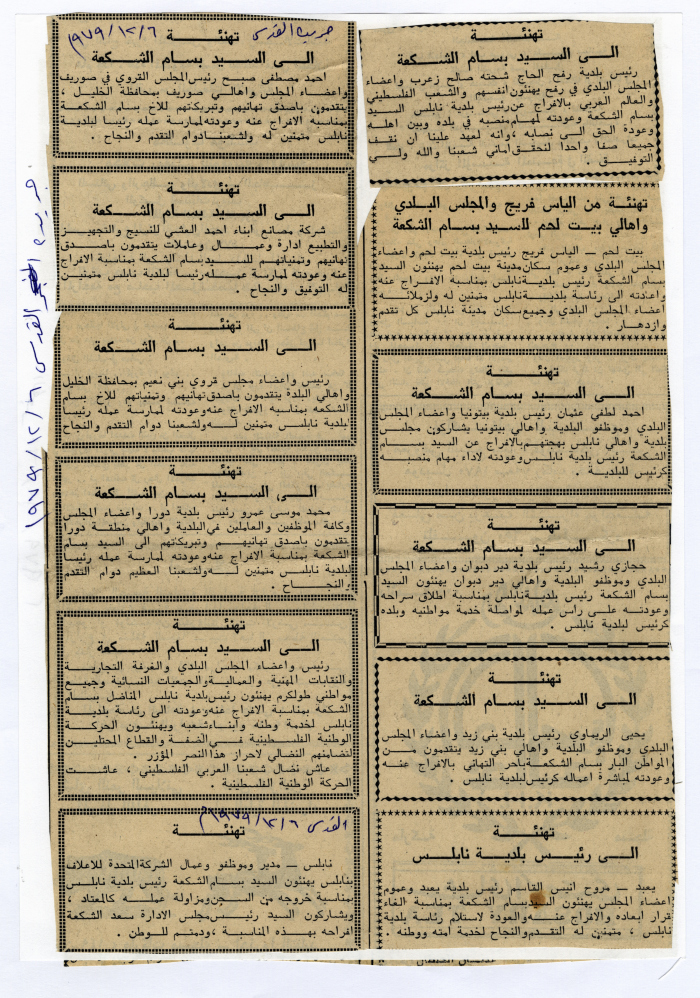 تهنئة
الى السيد بسام الشكعة
رئيس بلدية رفح الحاج شحته صالح زعرب واعضاء
المجلس البلدي في رفح يهنئون انفسهم والشعب الفلسطيني
والعالم العربي بالافراج عن رئيس بلدية نابلس السيد
بسام الشكعة وعودته لمهام منصبه في بلده وبين اهله
وعودة الحق الى نصابه ، وانه لعهد علينا ان نقف
جميعا صفا واحدا لنحقق اماني شعبنا والله ولي
التوفيق .
تهنئة من الياس فريج والمجلس البلدي
واهالي بيت لحم للسيد بسام الشكعة
بيت لحم — الياس فريج رئيس بلدية بيت لحم واعضاء
المجلس البلدي وعموم سكان مدينة بيت لحم يهنئون السيد
بسام الشكعة رئيس بلدية نابلس بمناسبة الافراج عنه
واعادته الى رئاسة بلدية نابلس متمنين له ولزملائه
اعضاء المجلس البلدي وجميع سكان مدينة نابلس كل تقدم
وازدهار .
تهنئة
الى السيد بسام الشكعة
احمد لطفي عثمان رئيس بلدية بيتونيا واعضاء المجلس
البلدي وموظفو البلدية واهالي بيتونيا يشاركون مجلس
بلدية واهالي نابلس بهجتهم بالافراج عن السيد بسام
الشكعة رئيس بلدية نابلس وعودته لاداء مهام منصبه
كرئيس للبلدية .
تهنئة
الى السيد بسام الشكعة
حجازي رشيد رئيس بلدية دير دبوان واعضاء المجلس
البلدي وموظفو البلدية واهالي دير دبوان يهنئون السيد
بسام الشكعة رئيس بلدية نابلس بمناسبة اطلاق سراحه
وعودته على راس عمله لمواصلة خدمة مواطنيه وبلده
كرئيس لبلدية نابلس .
تهنئة
الى السيد بسام الشكعة
يحيى الريماوي رئيس بلدية بني زيد واعضاء المجلس
البلدي وموظفو البلدية واهالي بني زيد يتقدمون من
المواطن البار بسام الشكعة باحر التهاني بالافراج عنه
وعودته لمباشرة اعماله كرئيس لبلدية نابلس .
تهنئة
الى رئيس بلدية نابلس
يعبد — مروح انيس القاسم رئيس بلدية يعبد وعموم
اعضاء المجلس يهنئون السيد بسام الشكعة بمناسبة الغاء
قرار ابعاده والافراج عنه والعودة لاستلام رئاسة بلدية
نابلس ، متمنين له التقدم والنجاح لخدمة امته ووطنه .
جريدة القدس ١٩٧٩/١٢/٦
تهنئة
الى السيد بسام الشكعة
احمد مصطفى صبح رئيس المجلس القروي في صوريف
واعضاء المجلس واهالي صوريف بمحافظة الخليل ،
يتقدمون باصدق تهانيهم وتبريكاتهم للاخ بسام الشكعة
بمناسبة الافراج عنه وعودته لممارسة عمله رئيسا لبلدية
نابلس متمنين له ولشعبنا دوام التقدم والنجاح .
تهنئة
الى السيد بسام الشكعة
شركة مصانع ابناء احمد العشي للنسيج والتجهيز
والتطبيع ادارة وعمال وعاملات يتقدمون باصدق
تهانيهم وتمنياتهم للسيد بسام الشكعة بمناسبة الافراج
عنه وعودته لممارسة عمله رئيسا لبلدية نابلس متمنين
له التوفيق والنجاح .
تهنئة
الى السيد بسام الشكعة
رئيس واعضاء مجلس قروي بني نعيم بمحافظة الخليل
واهالي البلدة يتقدمون باصدق تهانيهم وتمنياتهم للاخ بسام
الشكعه بمناسبة الافراج عنه وعودته لممارسة عمله رئيسا
لبلدية نابلس متمنين له ولشعبنا دوام التقدم والنجاح
تهنئة
الى السيد بسام الشكعة
محمد موسى عمرو رئيس بلدية دورا واعضاء المجلس
وكافة الموظفين والعاملين في البلدية واهالي منطقة دورا
يتقدمون باصدق تهانيهم وتبريكاتهم الى السيد بسام
الشكعة بمناسبة الافراج عنه وعودته لممارسة عمله رئيسا
لبلدية نابلس متمنين له ولشعبنا العظيم دوام التقدم
والنجاح .
تهنئة
الى السيد بسام الشكعة
رئيس واعضاء المجلس البلدي والغرفة التجارية
والنقابات المهنية والعمالية والجمعيات النسائية وجميع
مواطني طولكرم يهنئون رئيس بلدية نابلس المناضل بسام
الشكعة بمناسبة الافراج عنه وعودته الى رئاسة بلدية
نابلس لخدمة وطنه وابناء شعبه ويهنئون الحركة
الوطنية الفلسطينية في الضفة والقطاع المحتلين
لتضامنهم النضالي لاحراز هذا النصر المؤزر .
عاش نضال شعبنا العربي الفلسطيني ، عاشت
الحركة الوطنية الفلسطينية .
القدس ١٩٧٩/١٢/٦م
تهنئة
نابلس — مدير وموظفو وعمال الشركة المتحدة للاعلاف
بنابلس يهنئون السيد بسام الشكعة رئيس بلدية نابلس
بمناسبة خروجه من السجن ومزاولة عمله كالمعتاد ،
ويشاركون السيد رئيس مجلس الادارة سعد الشكعة
افراحه بهذه المناسبة ، ودمتم للوطن .
جريدة القدس ١٩٧٩/١٢/٦